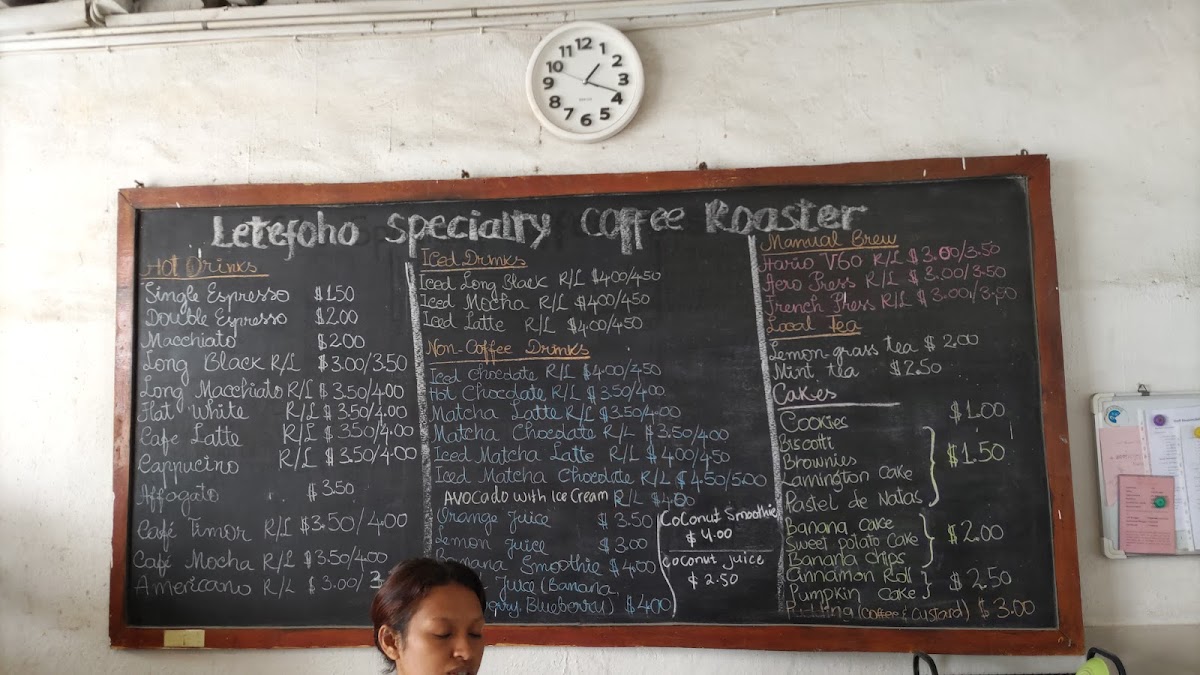 12
11
1
10
2
9
3
8
4
7
5
6
Letefoho Specialty Coffee Roaster
Hot Drinks
Single Espresso $1.50
Double Espresso $2.00
Macchiato $2.00
Long Black R/L $3.00/3.50
Long Macchiato R/L $3.50/4.00
Flat White R/L $3.50/4.00
Cafe Latte R/L $3.50/4.00
Cappucino R/L $3.50/4.00
Affogato $3.50
Café Timor R/L $3.50/4.00
Cafe Mocha R/L $3.50/4.00
Americano R/L $3.00/
Iced Drinks
Iced Long Black R/L $4.00/4.50
Iced Mocha R/L $4.00/4.50
Iced Latte R/L $4.00/4.50
Non-Coffee Drinks
Iced Chocolate R/L $4.00/4.50
Hot Chocolate R/L $3.50/4.00
Matcha Latte R/L $3.50/4.00
Matcha Chocolate R/L $3.50/4.00
Iced Matcha Latte R/L $4.00/4.50
Iced Matcha Chocolate R/L $4.50/5.00
Avocado with Ice Cream R/L $4.00
Orange Juice $3.50
Lemon Juice $3.00
Banana Smoothie $4.00
Juice (Banana,
Blueberry) $4.00
Coconut Smoothie
$4.00
Coconut juice
$2.50
Manual Brew
Hario V60 R/L $3.00/3.50
Aero Press R/L $3.00/3.50
French Press R/L $3.00/3.50
Local Tea
Lemon grass tea $2.00
Mint tea $2.50
Cakes
Cookies $1.00
Biscotti
Brownies $1.50
Lamington Cake
Pastel de Natas
Banana cake
Sweet potato Cake $2.00
Banana Chips
Cinnamon Roll
Pumpkin Cake $2.50
Pudding (Coffee & Custard) $3.00